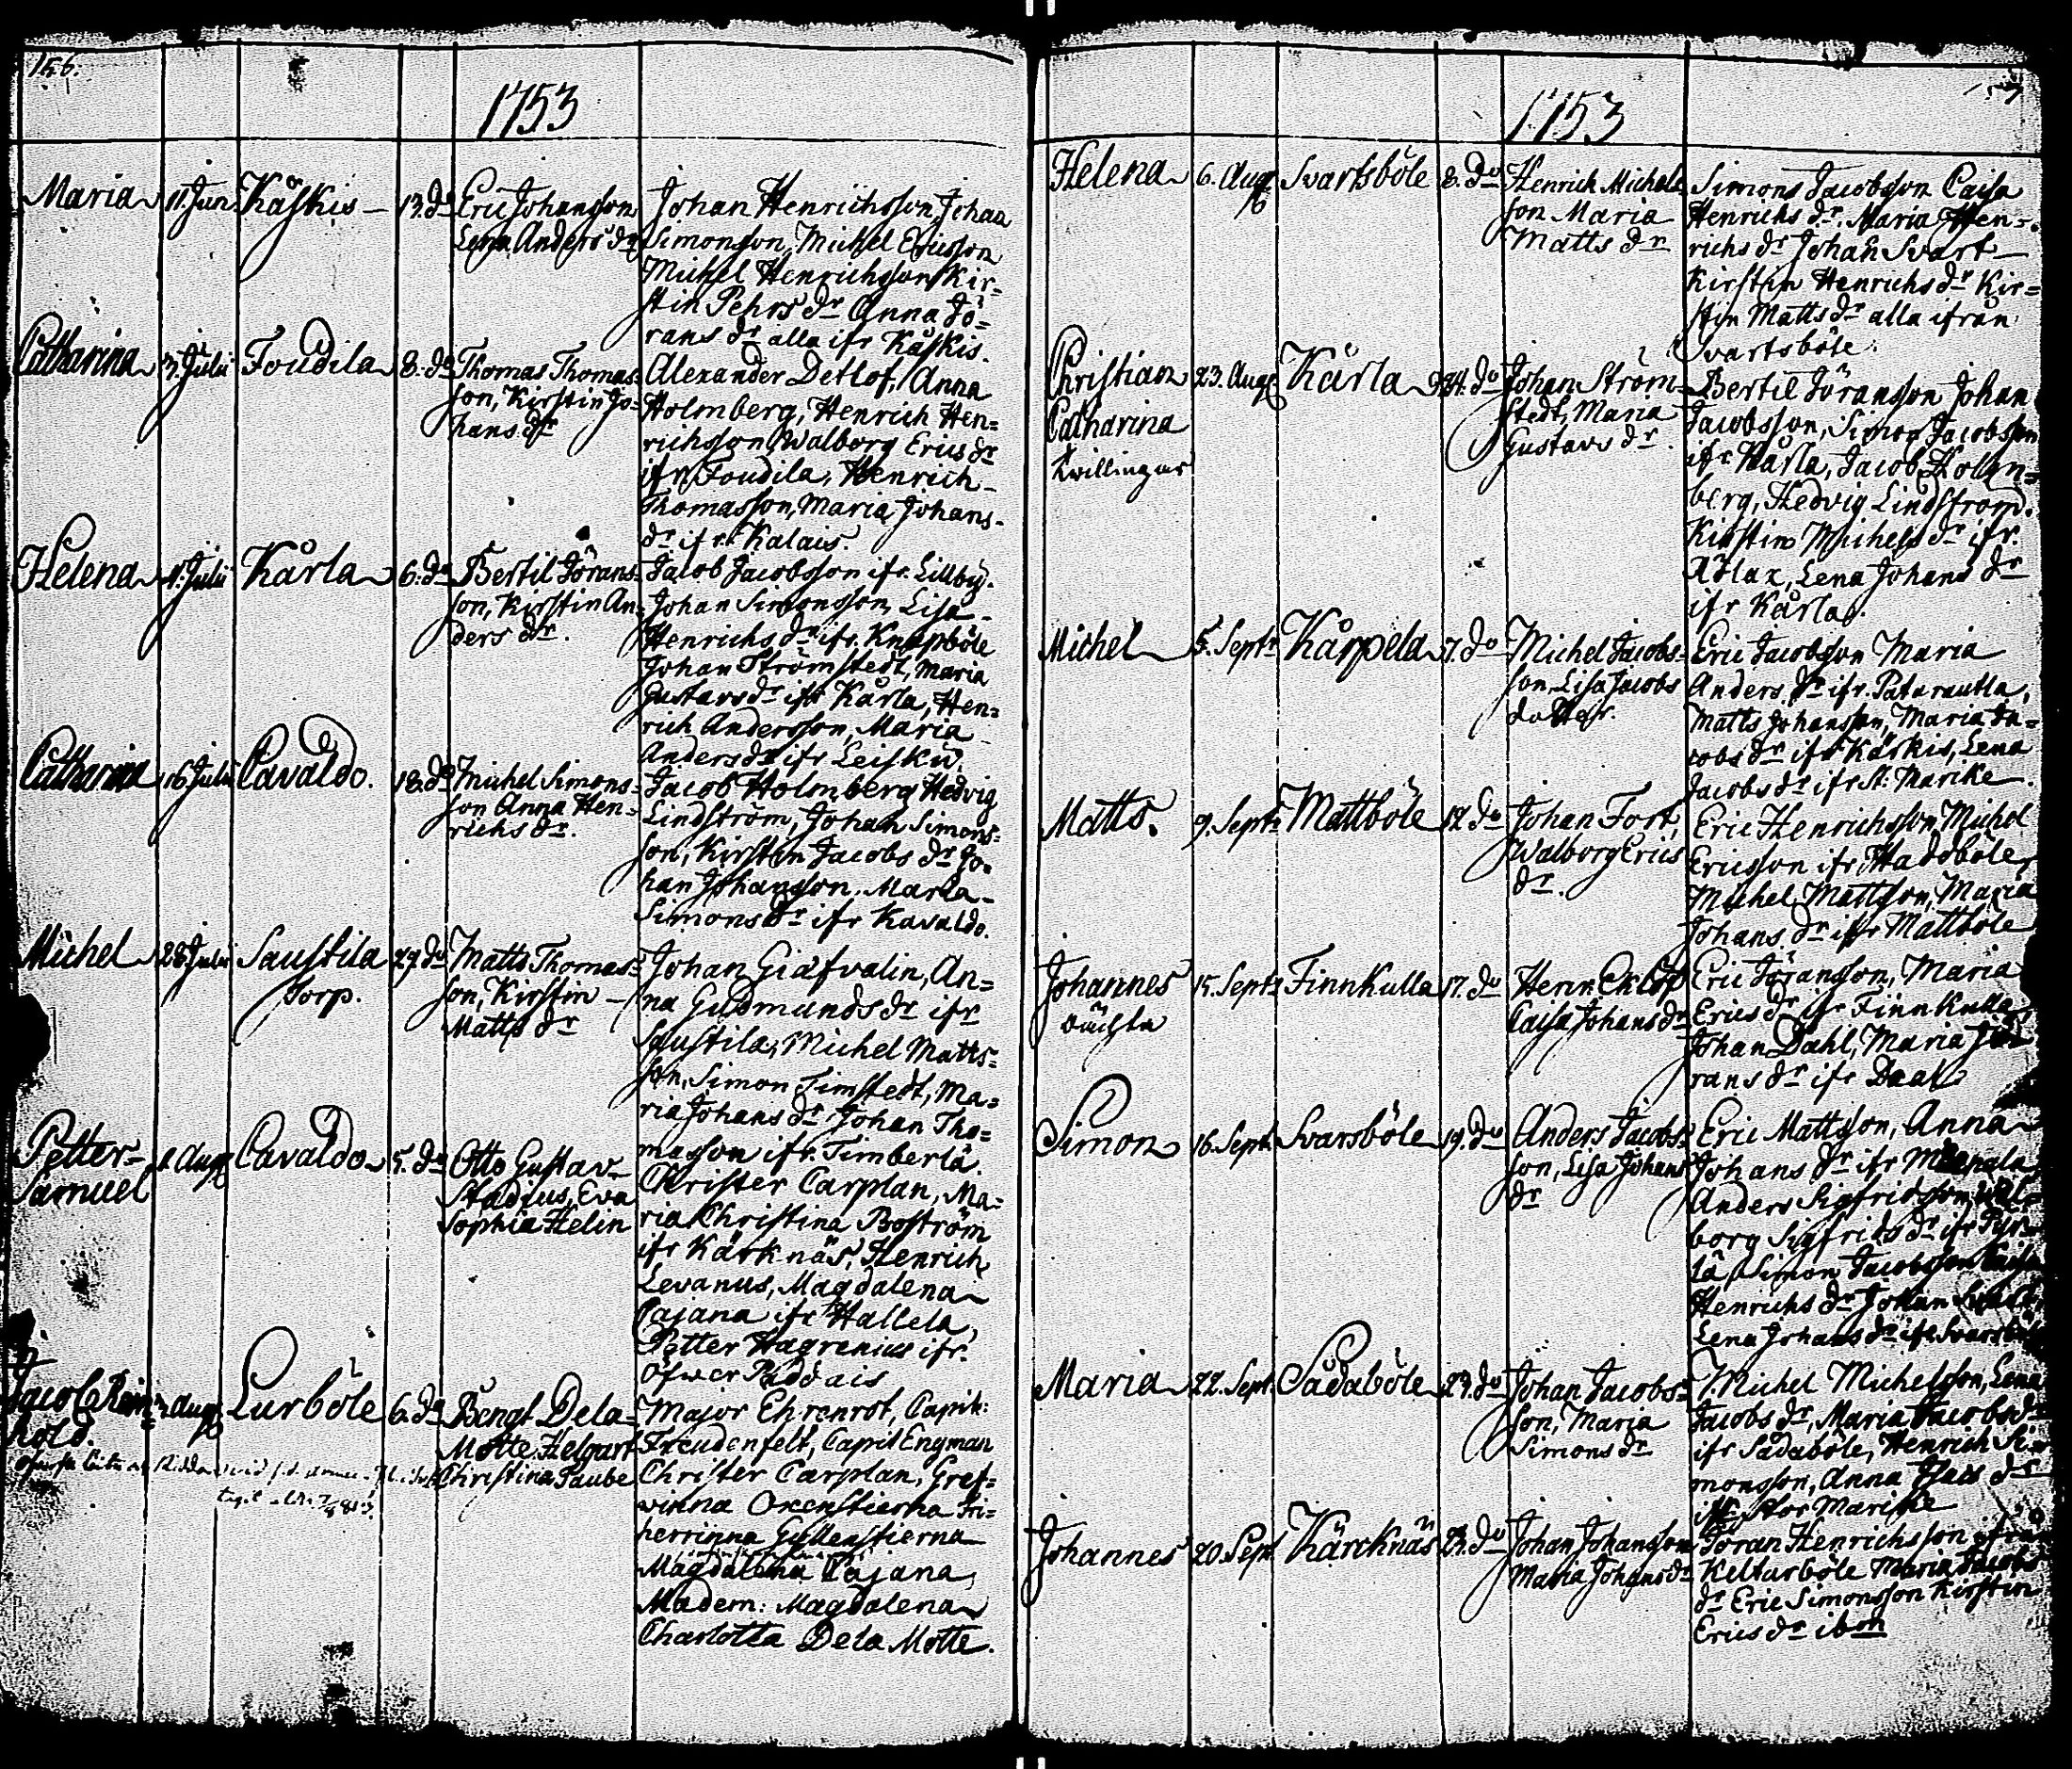 156.
1753
Maria 11. Jun. Kåskis 13. do Eric Johansson
Lena Anders dr
Johan Henrichsson, Johan
Simonsson, Michel Ericsson
Michel Henrichsson Kir=
stin Pehrs dr Anna Jö=
rans dr alla ifr Kåskis.
Catharina 3. Julii Foudila 8. do Thomas Thomas=
son, Kirstin Jo=
hans dr
Alexander Detlof, Anna
Holmberg, Henrich Hen=
richsson Walborg Erics dr
ifr Foudila, Henrich
Thomasson, Maria Johans-
dr ifr Kalais.
Helena 4. Julii Kårla 6. do Bertil Jörans=
son, Kirstin An=
ders dr.
Jacob Jacobsson ifr. Lillby.
Johan Simonsson, Lisa
Henrichs dr ifr. Knapsböle
Johan Strömstedt, Maria
Gustavs dr ifr Kårla, Hen=
rich Andersson, Maria
Anders dr ifr Leisku.
Catharina 16 Julii Cavaldo. 18. do Michel Simons=
son Anna Hen=
richs dr.
Jacob Holmberg Hedvig
Lindström, Johan Simons=
son, Kirstin Jacobs dr Jo=
han Johansson. Maria
Simons dr ifr Kavaldo.
Michel 28 Julii Saustila
Torp.
29. do Matts Thomas=
son, Kirstin
Matts dr
Johan Gräfvalin, An=
na Gudmunds dr ifr
Saustila, Michel Matts=
son, Simon Timstedt, Ma=
ria Johans dr Johan Tho=
masson ifr. Timberlä.
Petter=
Samuel
1 Aug Cavaldo 5. do Otto Gustav
Stadius, Eva
Sophia Helin
Christer Carplan, Ma=
ria Christina Boström
ifr Kärknäs, Henrich
Levanus, Magdalena
Cajana ifr Hallela,
Petter Hagrenius ifr.
Öfwer Paddais
Jacob Rein=
hold.
Aug Lurböle 6. do Bengt Dela=
Motte Helgart
Christina Taube
Major Ehrenrot, Capit:
Freudenfelt, Capit Engman
Christer Carplan, Gref=
winna Oxenstierna Fri=
herrinna Gyllenstierna
Magdalena Cajana,
Madem: Magdalena
Charlotta Dela Motte.
1753
Helena 6. Aug. Svartsböle 8. do Henrich Michels
son Maria
Matts dr
Simons Jacobsson Caisa
Henrichs dr. Maria Hen=
richs dr Johan Svart
Kirstin Henrichs dr Kir=
stin Matts dr alla ifrån
Svartsböle.
Christian
Catharina
tvillingar
23. Aug. Kårla 24. do Johan Ström=
stedt, Maria
Gustavs dr.
Bertil Jöransson Johan
Jacobsson, Simon Jacobsson
ifr Kårla, Jacob Hollm=
berg, Hedvig Lindström.
Kirstin Michels dr ifr.
Ådlax, Lena Johans dr
ifr Kårla.
Michel 5. Septr Kårpela 7. do Michel Jacobs=
son, Lisa Jacobs
dotter.
Eric Jacobsson Maria
Anders dr ifr. Patarautla,
Matts Johansson, Maria Ja=
cobs dr ifr Kåskis, Lena
Jacobs dr ifr St. Marike.
Matts. 9. Septr Mattböle 12 do Johan Fort,
Walborg Erics
dr.
Eric Henrichsson, Michel
Ericsson ifr. Haddböle,
Michel Mattsson, Maria
Johans dr ifr Mattböle
Johannes
oächta
15. Septr Finnkulla 17. do Henr. Eklöf
Caisa Johans dr
Eric Jöransson, Maria
Erics dr ifr Finnkulla,
Johan Dahl, Maria Jö
rans dr ifr Daal
Simon 16. Sept. Svarsböle 19. do Anders Jacobs=
son, Lisa Johans
dr
Eric Mattsson, Anna
Johans dr ifr
Anders Sigfridsson, Wal=
borg Sigfrids dr ifr
lä, Simon Jacobsson Caisa
Henrichs dr Johan
Lena Johans dr ifr Svarsböle
Maria 22. Sept. Sådaböle 23. do Johan Jacobs=
son, Maria
Simons dr
Michel Michelsson, Lena
Jacobs dr, Maria Jacobs dr
ifr Sådaböle, Henrich Si=
monsson, Anna Isacs dr
ifr Stor Mariske
Johannes 20. Sept Kärcknäs 23. do Johan Johansson
Maria Johans dr
Jöran Henrichsson ifrån
Kelturböle Maria Jacobs
dr Eric Simonsson Kirstin
Erics dr ibm